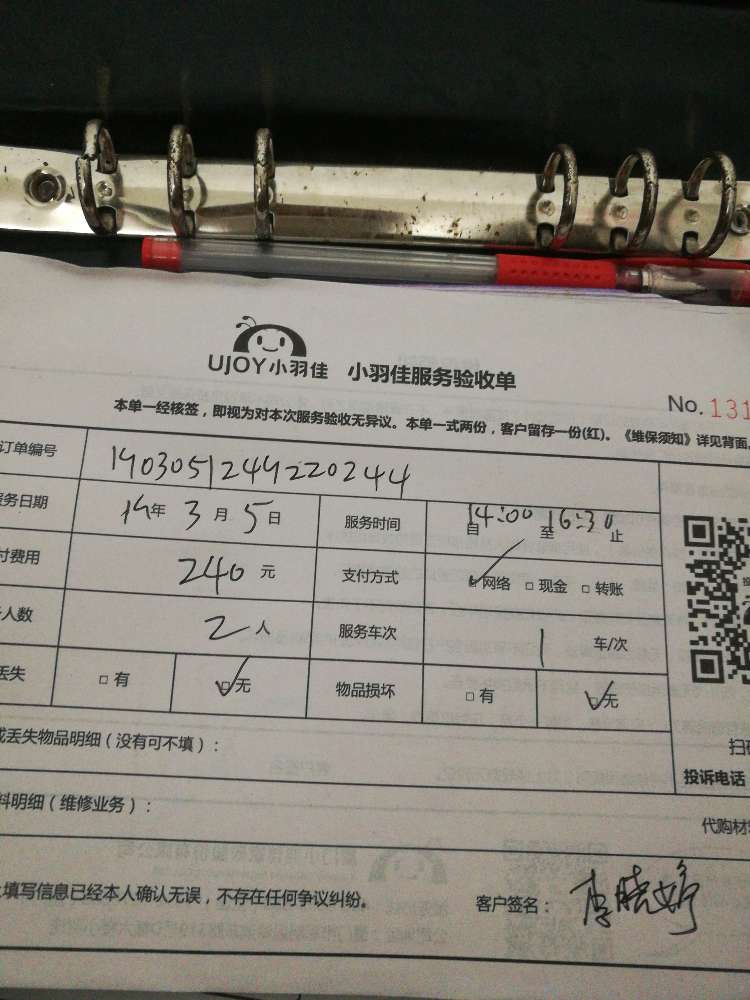 UJOY小羽佳 小羽佳服务验收单
No. 131
本单一经核签，即视为对本次服务验收无异议。本单一式两份，客户留存一份(红)。《维保须知》详见背面。
订单编号 190305124922024４
服务日期 19年 3月 5日 服务时间 自14:00至16:30止
付费用 240元 支付方式 ☑网络 □现金 □转账
人数 2人 服务车次 1 车/次
丢失 □有 ☑无 物品损坏 □有 ☑无
丢失物品明细（没有可不填）：
扫
投诉电话
料明细（维修业务）：
代购材
填写信息已经本人确认无误，不存在任何争议纠纷。 客户签名： 李晓婷